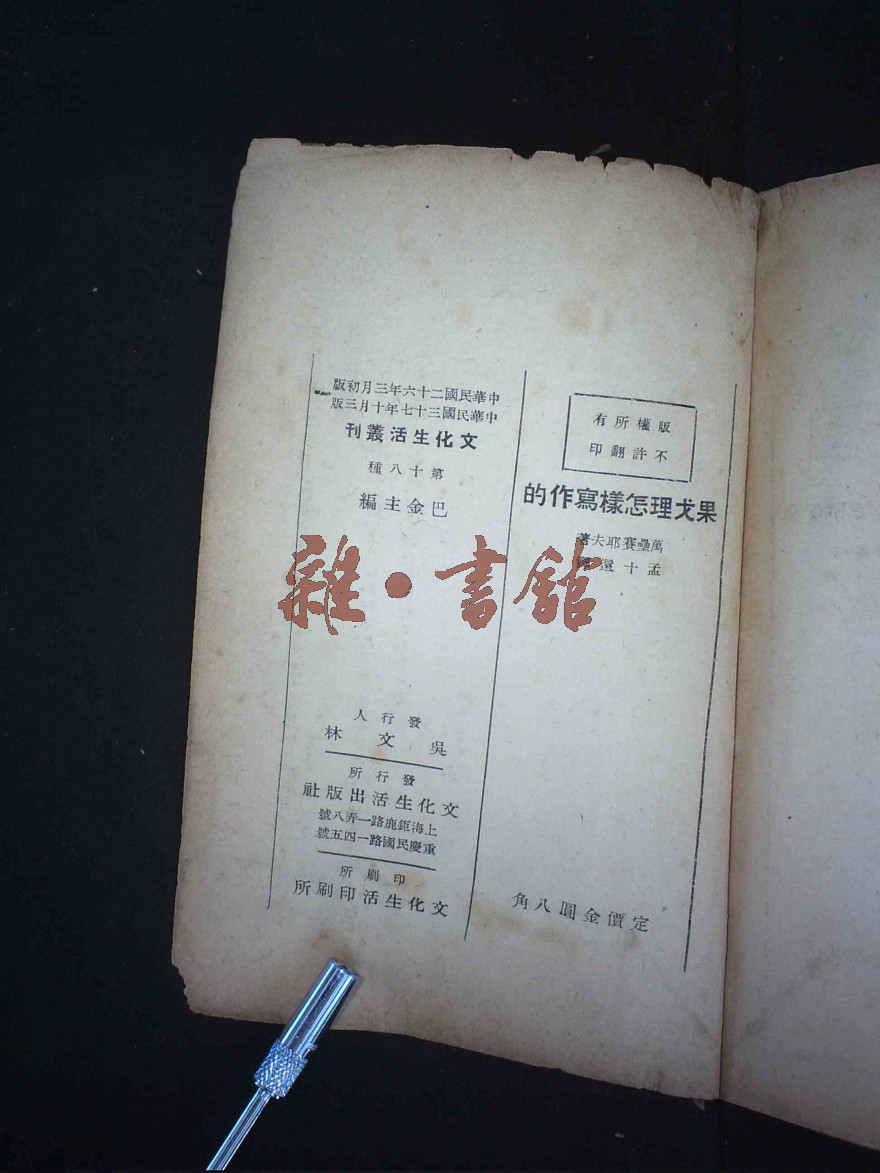 版權所有
不許翻印
果戈理怎樣寫作的
萬壘賽耶夫著
孟十還
定價金圓八角
中華民國二十六年三月初版
中華民國三十七年十月三版
文化生活叢刊
第十八種
巴金主編
發行人
吳文林
發行所
文化生活出版社
上海鉅鹿路一弄八號
重慶民國路一四五號
印刷所
文化生活印刷所
雜·書館